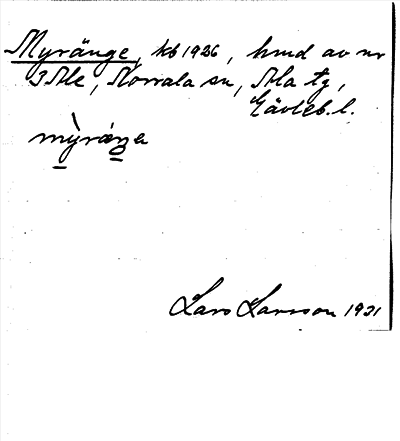 Myränge, kb 1926, hmd av nr
3 Ale, Norrala sn, Ala tg,
Gävleb. l.
mỳräŋa
Lars Larsson 1921